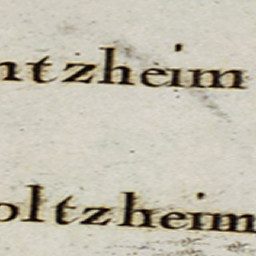 ntzheim
oltzheim